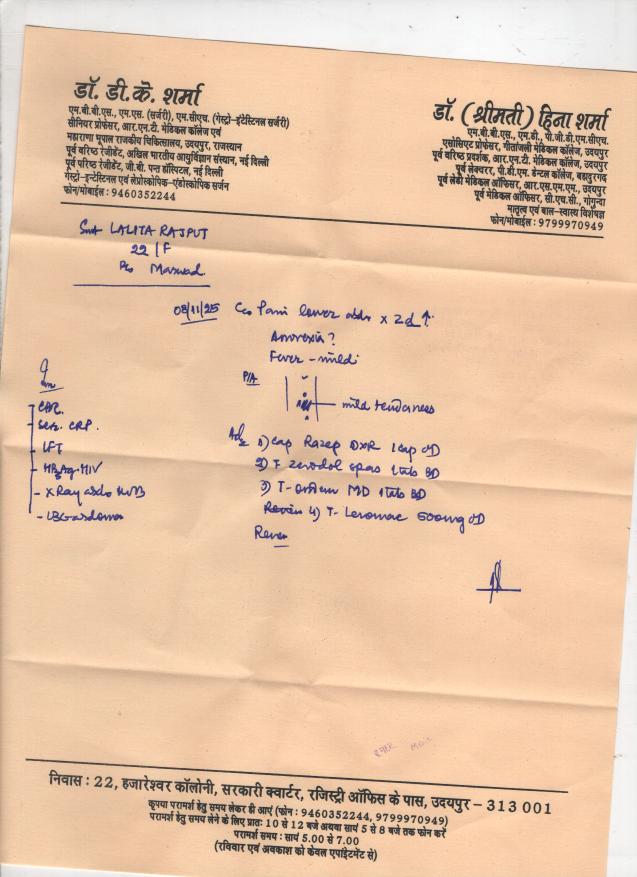 डॉ. डी.के. शर्मा
एम.बी.बी.एस., एम.एस. (सर्जरी), एम.सीएच. (गेस्ट्रो-इंटेस्टिनल सर्जरी)
सीनियर प्रोफेसर, आर.एन.टी. मेडिकल कॉलेज एवं
महाराणा भूपाल राजकीय चिकित्सालय, उदयपुर, राजस्थान
पूर्व वरिष्ठ रेजीडेंट, अखिल भारतीय आयुर्विज्ञान संस्थान, नई दिल्ली
पूर्व वरिष्ठ रेजीडेंट, जी.बी. पन्त हॉस्पिटल, नई दिल्ली
गेस्ट्रो-इन्टेस्टिनल एवं लेप्रोस्कोपिक-एंडोस्कोपिक सर्जन
फोन/मोबाईल : 9460352244
डॉ. (श्रीमती) हिना शर्मा
एम.बी.बी.एस., एम.डी., पी.जी.डी.एम.सीएच.
एसोसिएट प्रोफेसर, गीतांजली मेडिकल कॉलेज, उदयपुर
पूर्व वरिष्ठ प्रदर्शक, आर.एन.टी. मेडिकल कॉलेज, उदयपुर
पूर्व लेक्चरर, पी.डी.एम. डेन्टल कॉलेज, बहादुरगढ़
पूर्व लेडी मेडिकल ऑफिसर, आर.एस.एम.एम., उदयपुर
पूर्व मेडिकल ऑफिसर, सी.एच.सी., गोगुन्दा
मातृत्व एवं बाल-स्वास्थ्य विशेषज्ञ
फोन/मोबाईल : 9799970949
Smt LALITA RAJPUT
22/F
08/11/25 C/o Pain lower abdo x 2d ↑
Anorexia?
Fever - mild
P/A
mild tenderness
CBC.
- Ser. CRP.
- LFT
- HBsAg-HIV
- X Ray abdo KUB
- USG abdomen
Adv 1) Cap Razep DXR 1 cap OD
2) T zerodol spas 1 tab BD
3) T- MD 1 tab BD
Review 4) T- Levomac 500mg OD
Review
निवास : 22, हजारेश्वर कॉलोनी, सरकारी क्वार्टर, रजिस्ट्री ऑफिस के पास, उदयपुर - 313 001
कृपया परामर्श हेतु समय लेकर ही आएं (फोन : 9460352244, 9799970949)
परामर्श हेतु समय लेने के लिए प्रातः 10 से 12 बजे अथवा सायं 5 से 8 बजे तक फोन करें
परामर्श समय : सायं 5.00 से 7.00
(रविवार एवं अवकाश को केवल एपाईंटमेंट से)